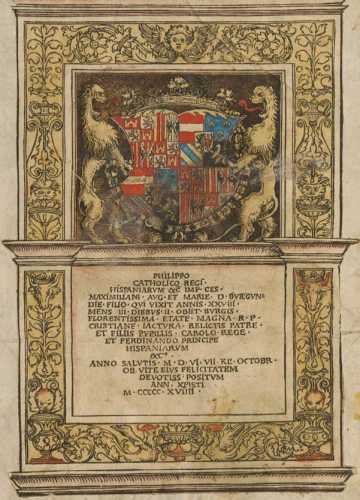 PHILIPPO
CATHOLICO REGI
HISPANIARUM &C IMP CES
MAXIMILIANI · AUG · ET MARIE · D · BURGUN
DIE · FILIO · QUI VIXIT ANNIS · XXVIII
MENS III · DIEBUS · II · OBIIT · BURGIS ·
FLORENTISSIMA · ETATE · MAGNA · R · P ·
CRISTIANE · IACTURA · RELICTIS PATRE ·
ET FILIIS PUPILLIS · CAROLO · REGE ·
ET FERDINANDO PRINCIPE
HISPANIARUM
&C
ANNO SALUTIS · M · D · VI · VII · KL · OCTOBR ·
OB VITE EIUS FELICITATEM
DEVOTISS · POSITUM
ANN · XPISTI
M · CCCCC · XVIIII ·